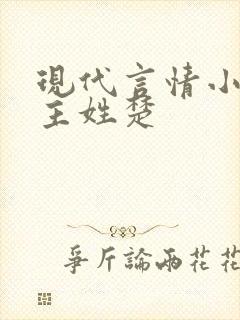 現代言情小
主姓楚
爭斤論兩花花